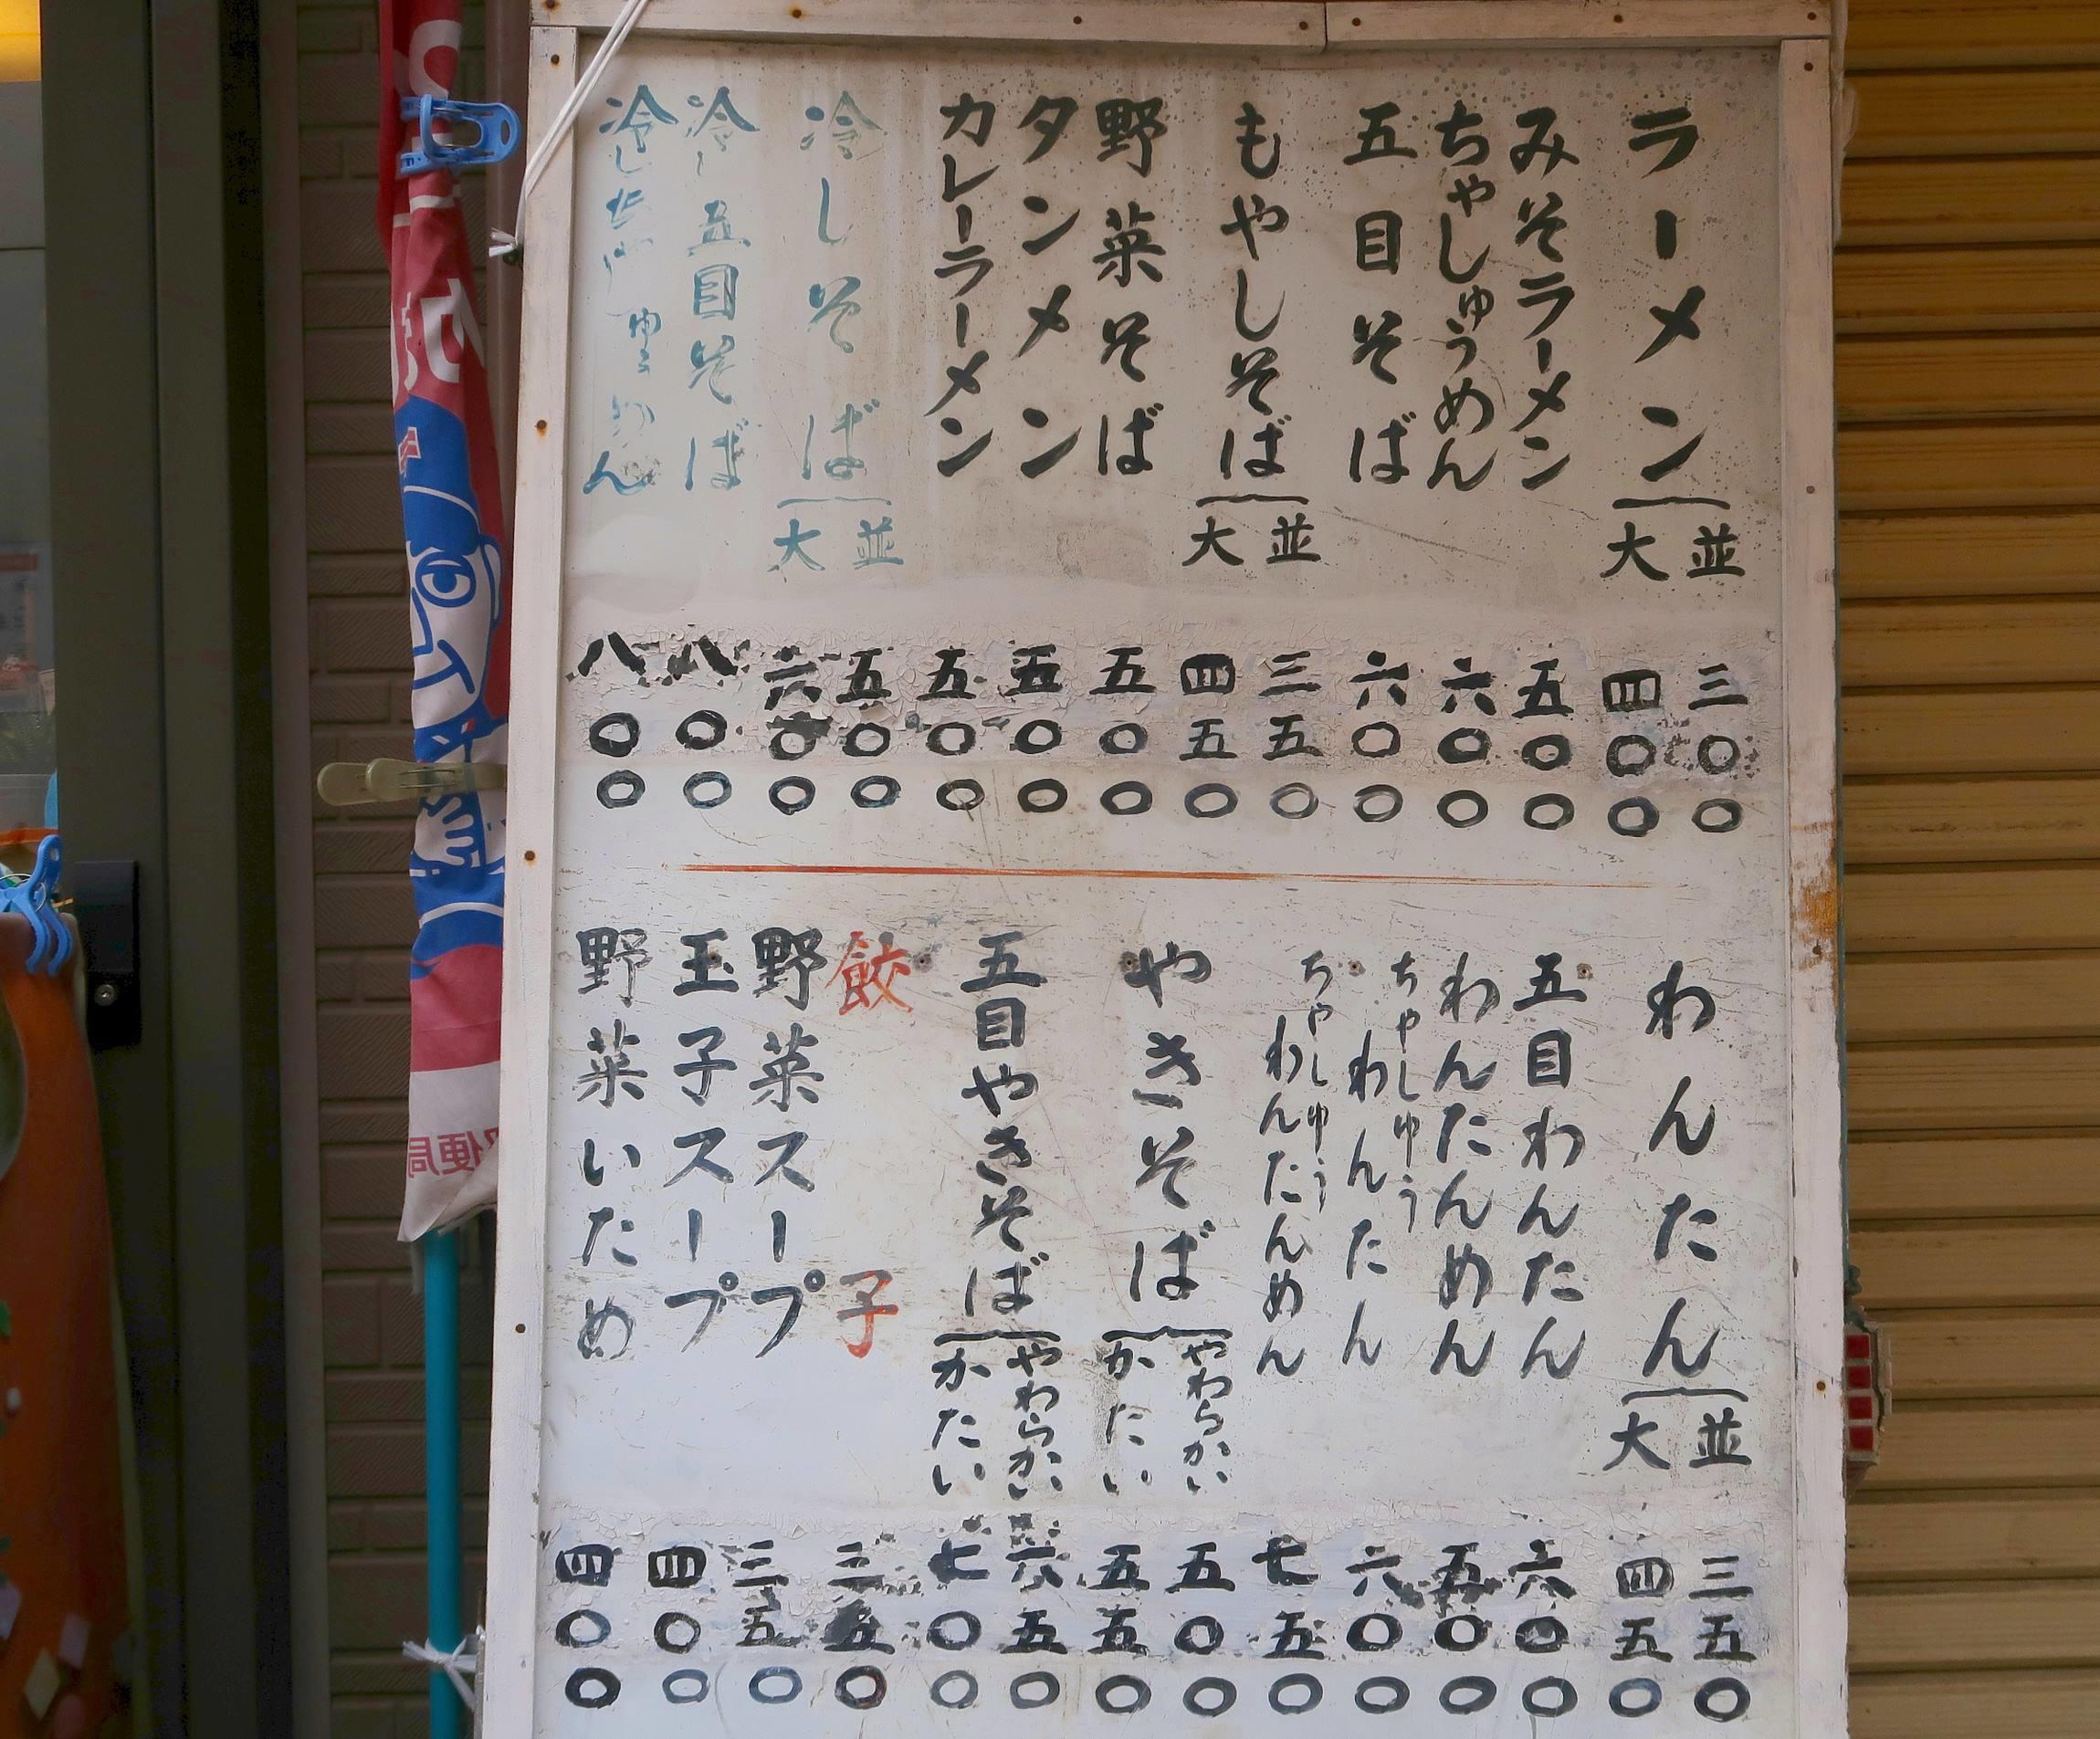 ラーメン
並 三〇〇
大 四〇〇
みそラーメン 五〇〇
ちゃしゅうめん 六〇〇
五目そば 六〇〇
もやしそば
並 三五〇
大 四五〇
野菜そば 五〇〇
タンメン 五〇〇
カレーラーメン 五〇〇
冷しそば
並 五〇〇
大 六〇〇
冷し五目そば 八〇〇
冷しちゃしゅうめん 八〇〇
わんたん
並 三五〇
大 四五〇
五目わんたん 六〇〇
わんたんめん 五〇〇
ちゃしゅうわんたん 六〇〇
ちゃしゅうわんたんめん 七五〇
やきそば
やわらかい 五〇〇
かたい 五五〇
五目やきそば
やわらかい 六五〇
かたい 七〇〇
餃子 三五〇
野菜スープ 三五〇
玉子スープ 四〇〇
野菜いため 四〇〇
便局